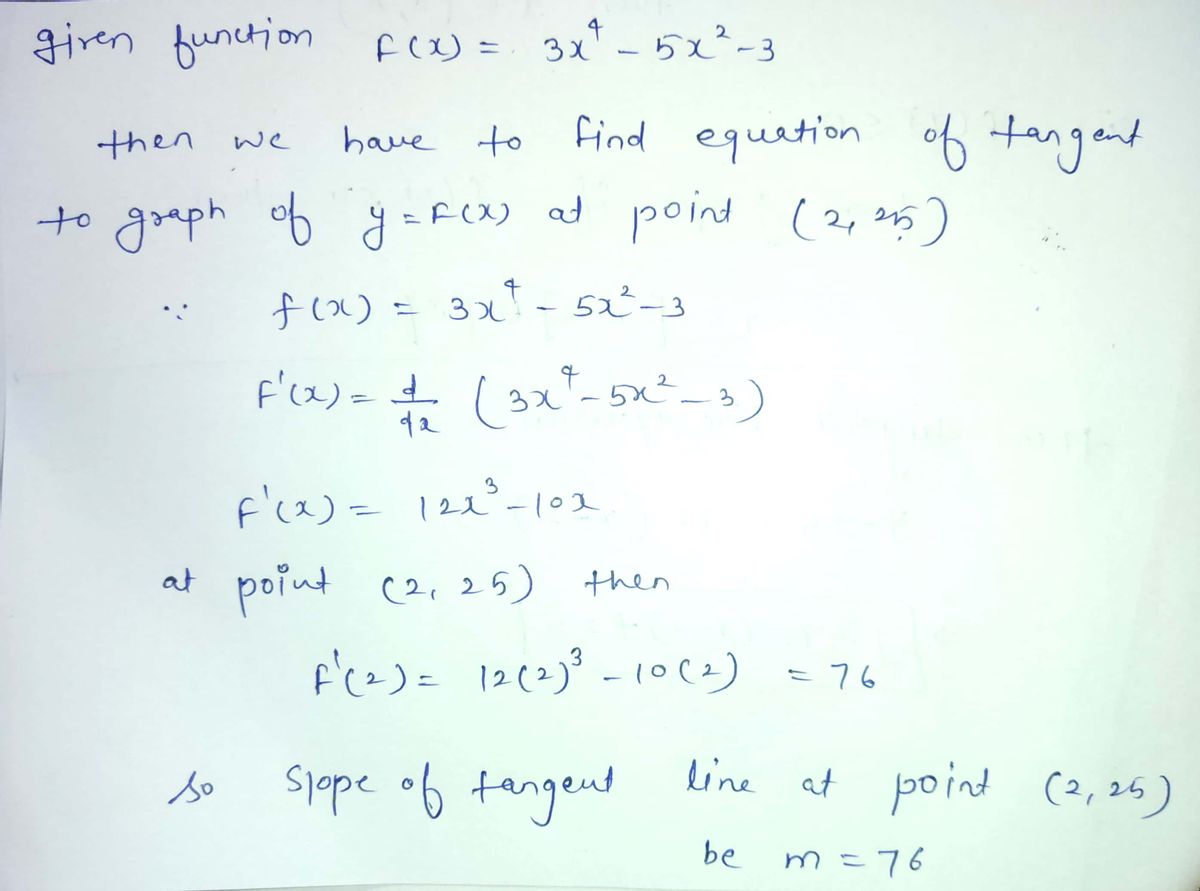 given function F(x) = 3x⁴ - 5x² - 3
then we have to find equation of tangent
to graph of y = F(x) at point (2, 25)
∵ f(x) = 3x⁴ - 5x² - 3
F'(x) = d/dx (3x⁴ - 5x² - 3)
F'(x) = 12x³ - 10x
at point (2, 25) then
F'(2) = 12(2)³ - 10(2) = 76
so slope of tangent line at point (2, 25)
be m = 76